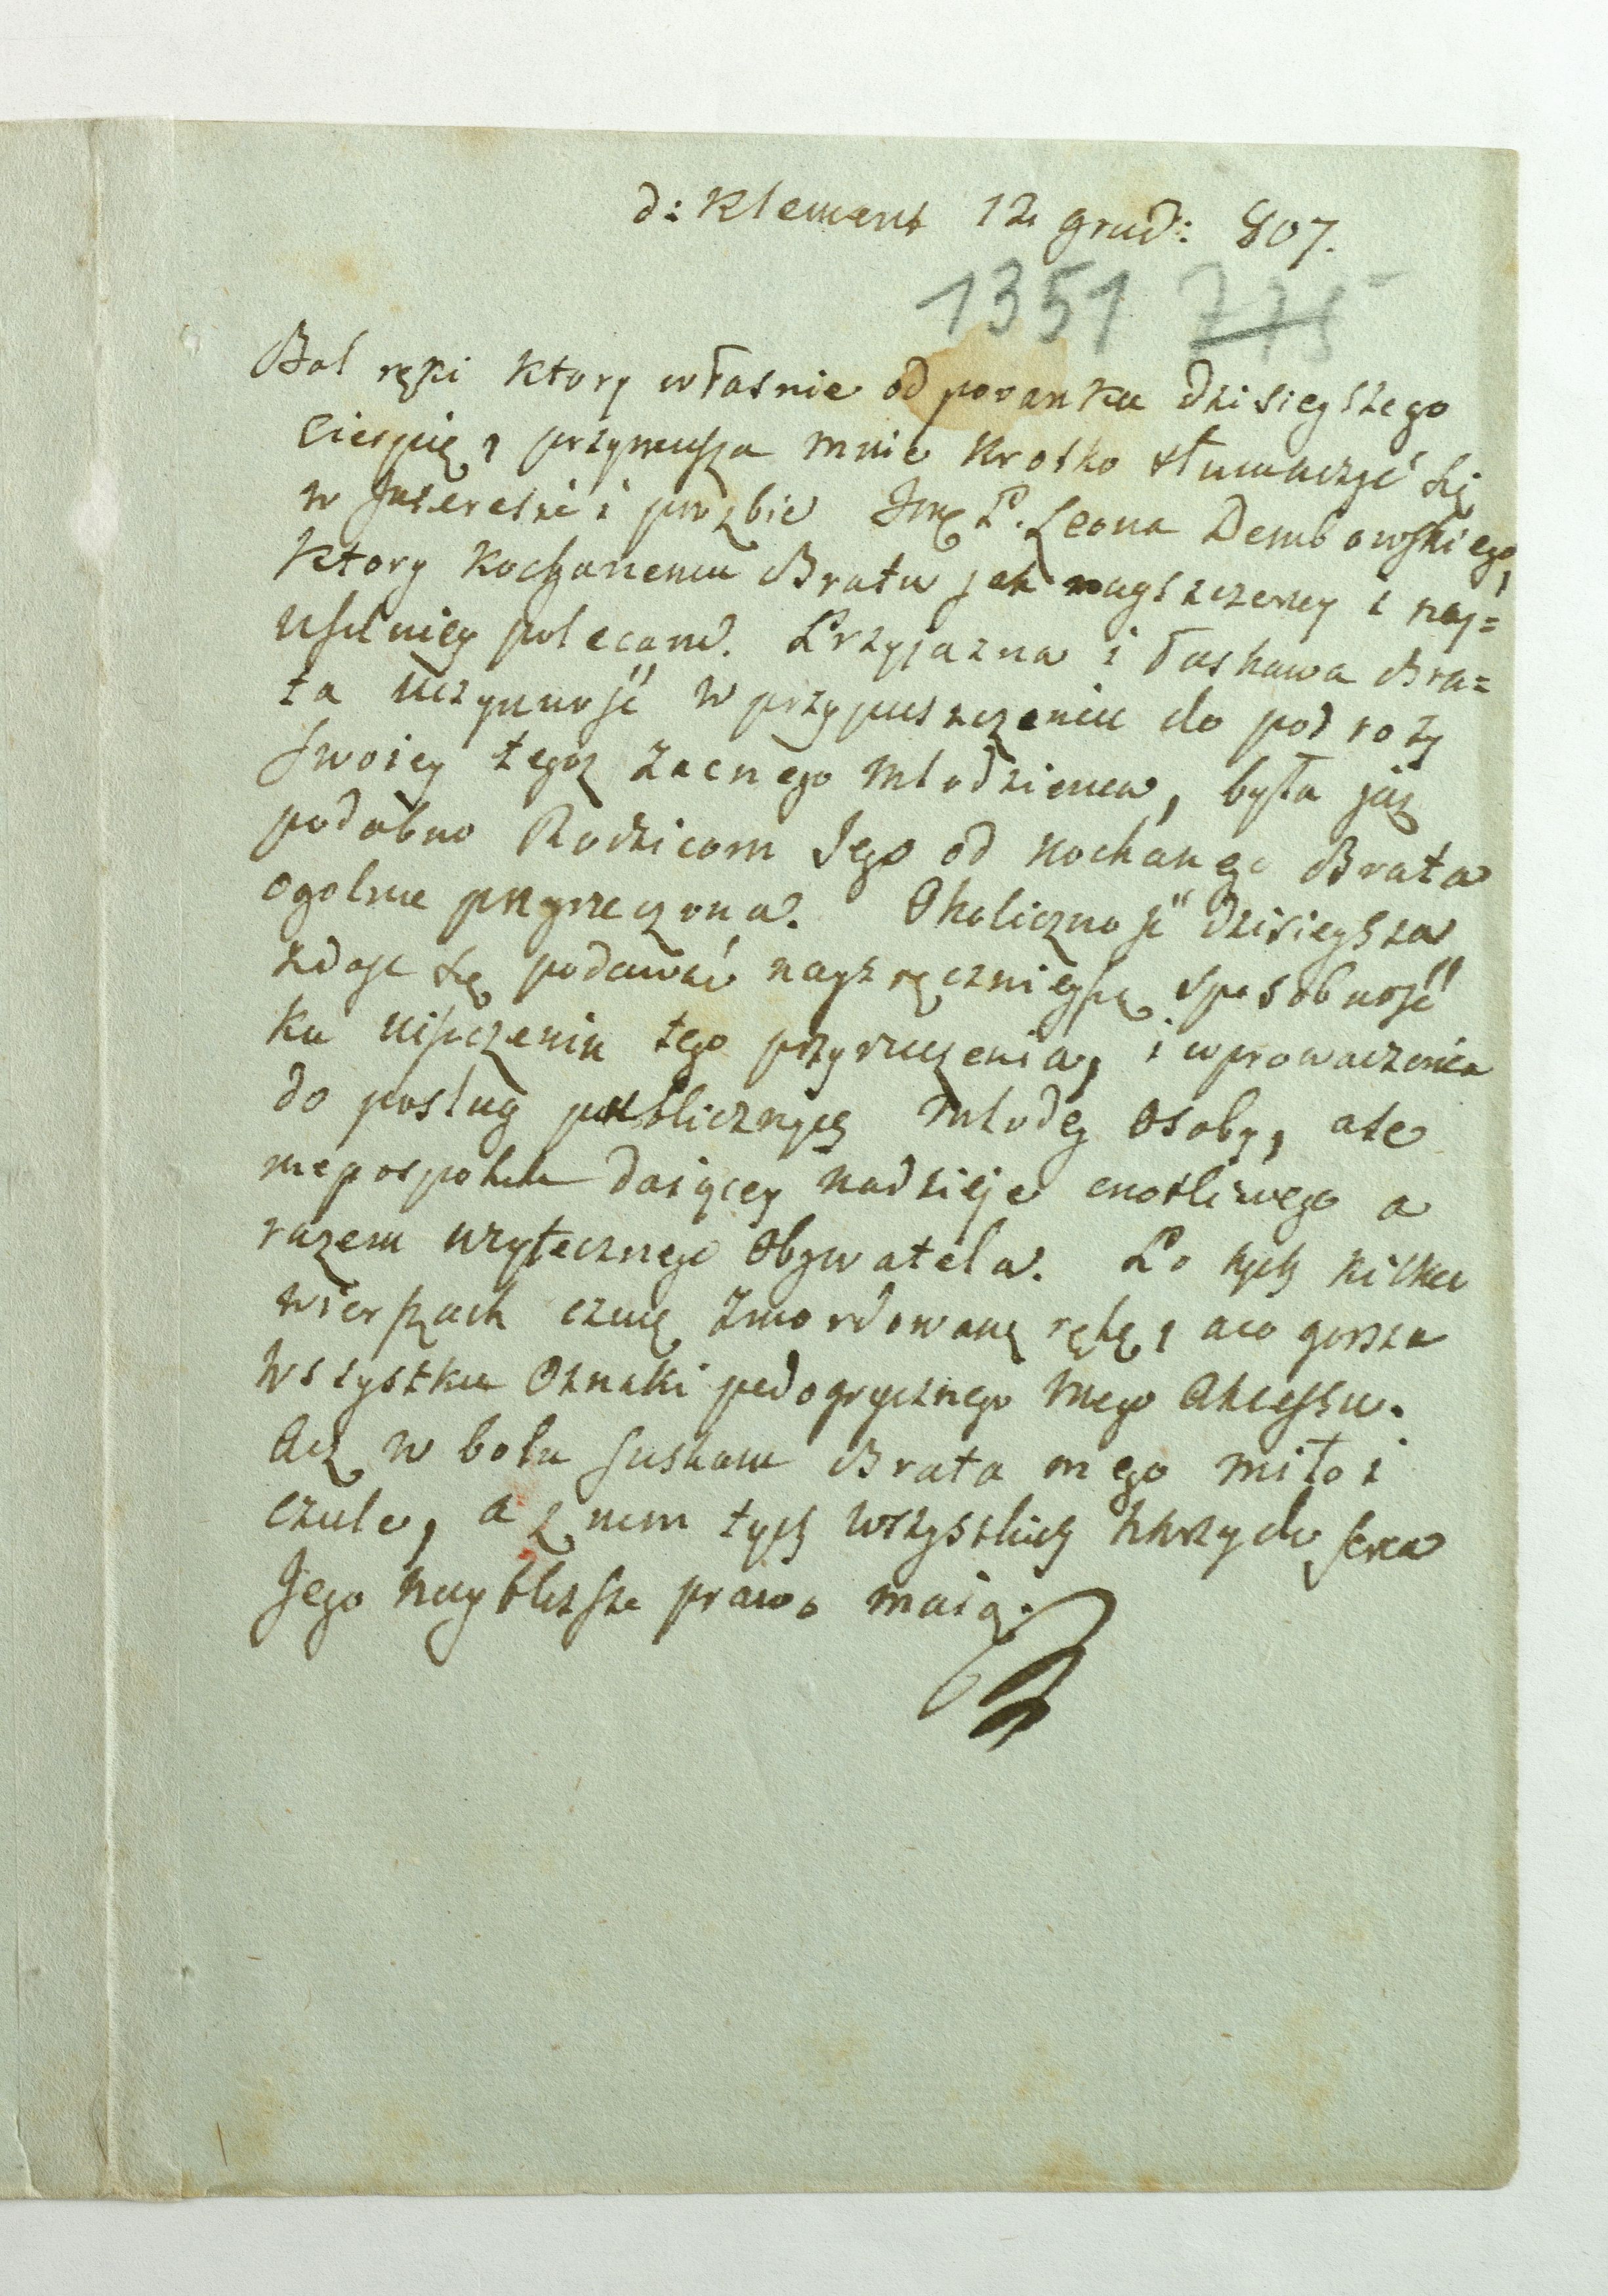 d: Klement 12 grud: 807.
1351 775
Bol ręki ktory własnie od poranku dzisieyszego
cierpię, przymusza mnie krotko tłumaczyć się
w Interesie i proźbie Jmć P. Leona Dembowskiego,
ktory kochanemu Bratu jak nayszczerzey i nay=
usilniey polecam. Przyjazna i łaskawa Bra=
ta uczynność w przypuszczeniu do podroży
swoiey tegoż zacnego Młodzienca, była już
podobno Rodzicom Jego od kochanego Brata
ogolnie przyrzeczona. Okoliczność dzisieysza
zdaje się podawać nayzręcznieyszą sposobność
ku uiszczeniu tego przyrzeczenia, i wprowadzenia
do posług publicznych Młodey Osoby, ale
niepospolite daiącey nadzieje cnotliwego a
razem użytecznego Obywatela. Po tych kilku
wierszach czuię zmordowaną rękę, a co gorsza
wszystkie Oznaki pedogrycznego mego Akcessu.
Acz w bolu sciskam Brata mego miło i
czule, a z nim tych wszystkich ktorzy do serca
Jego naybliższe prawo maią.